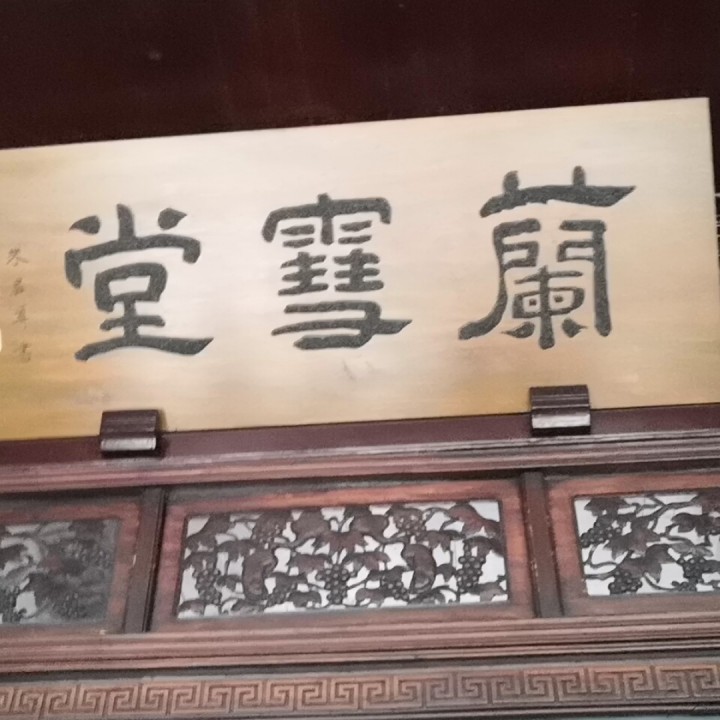 蘭雪堂